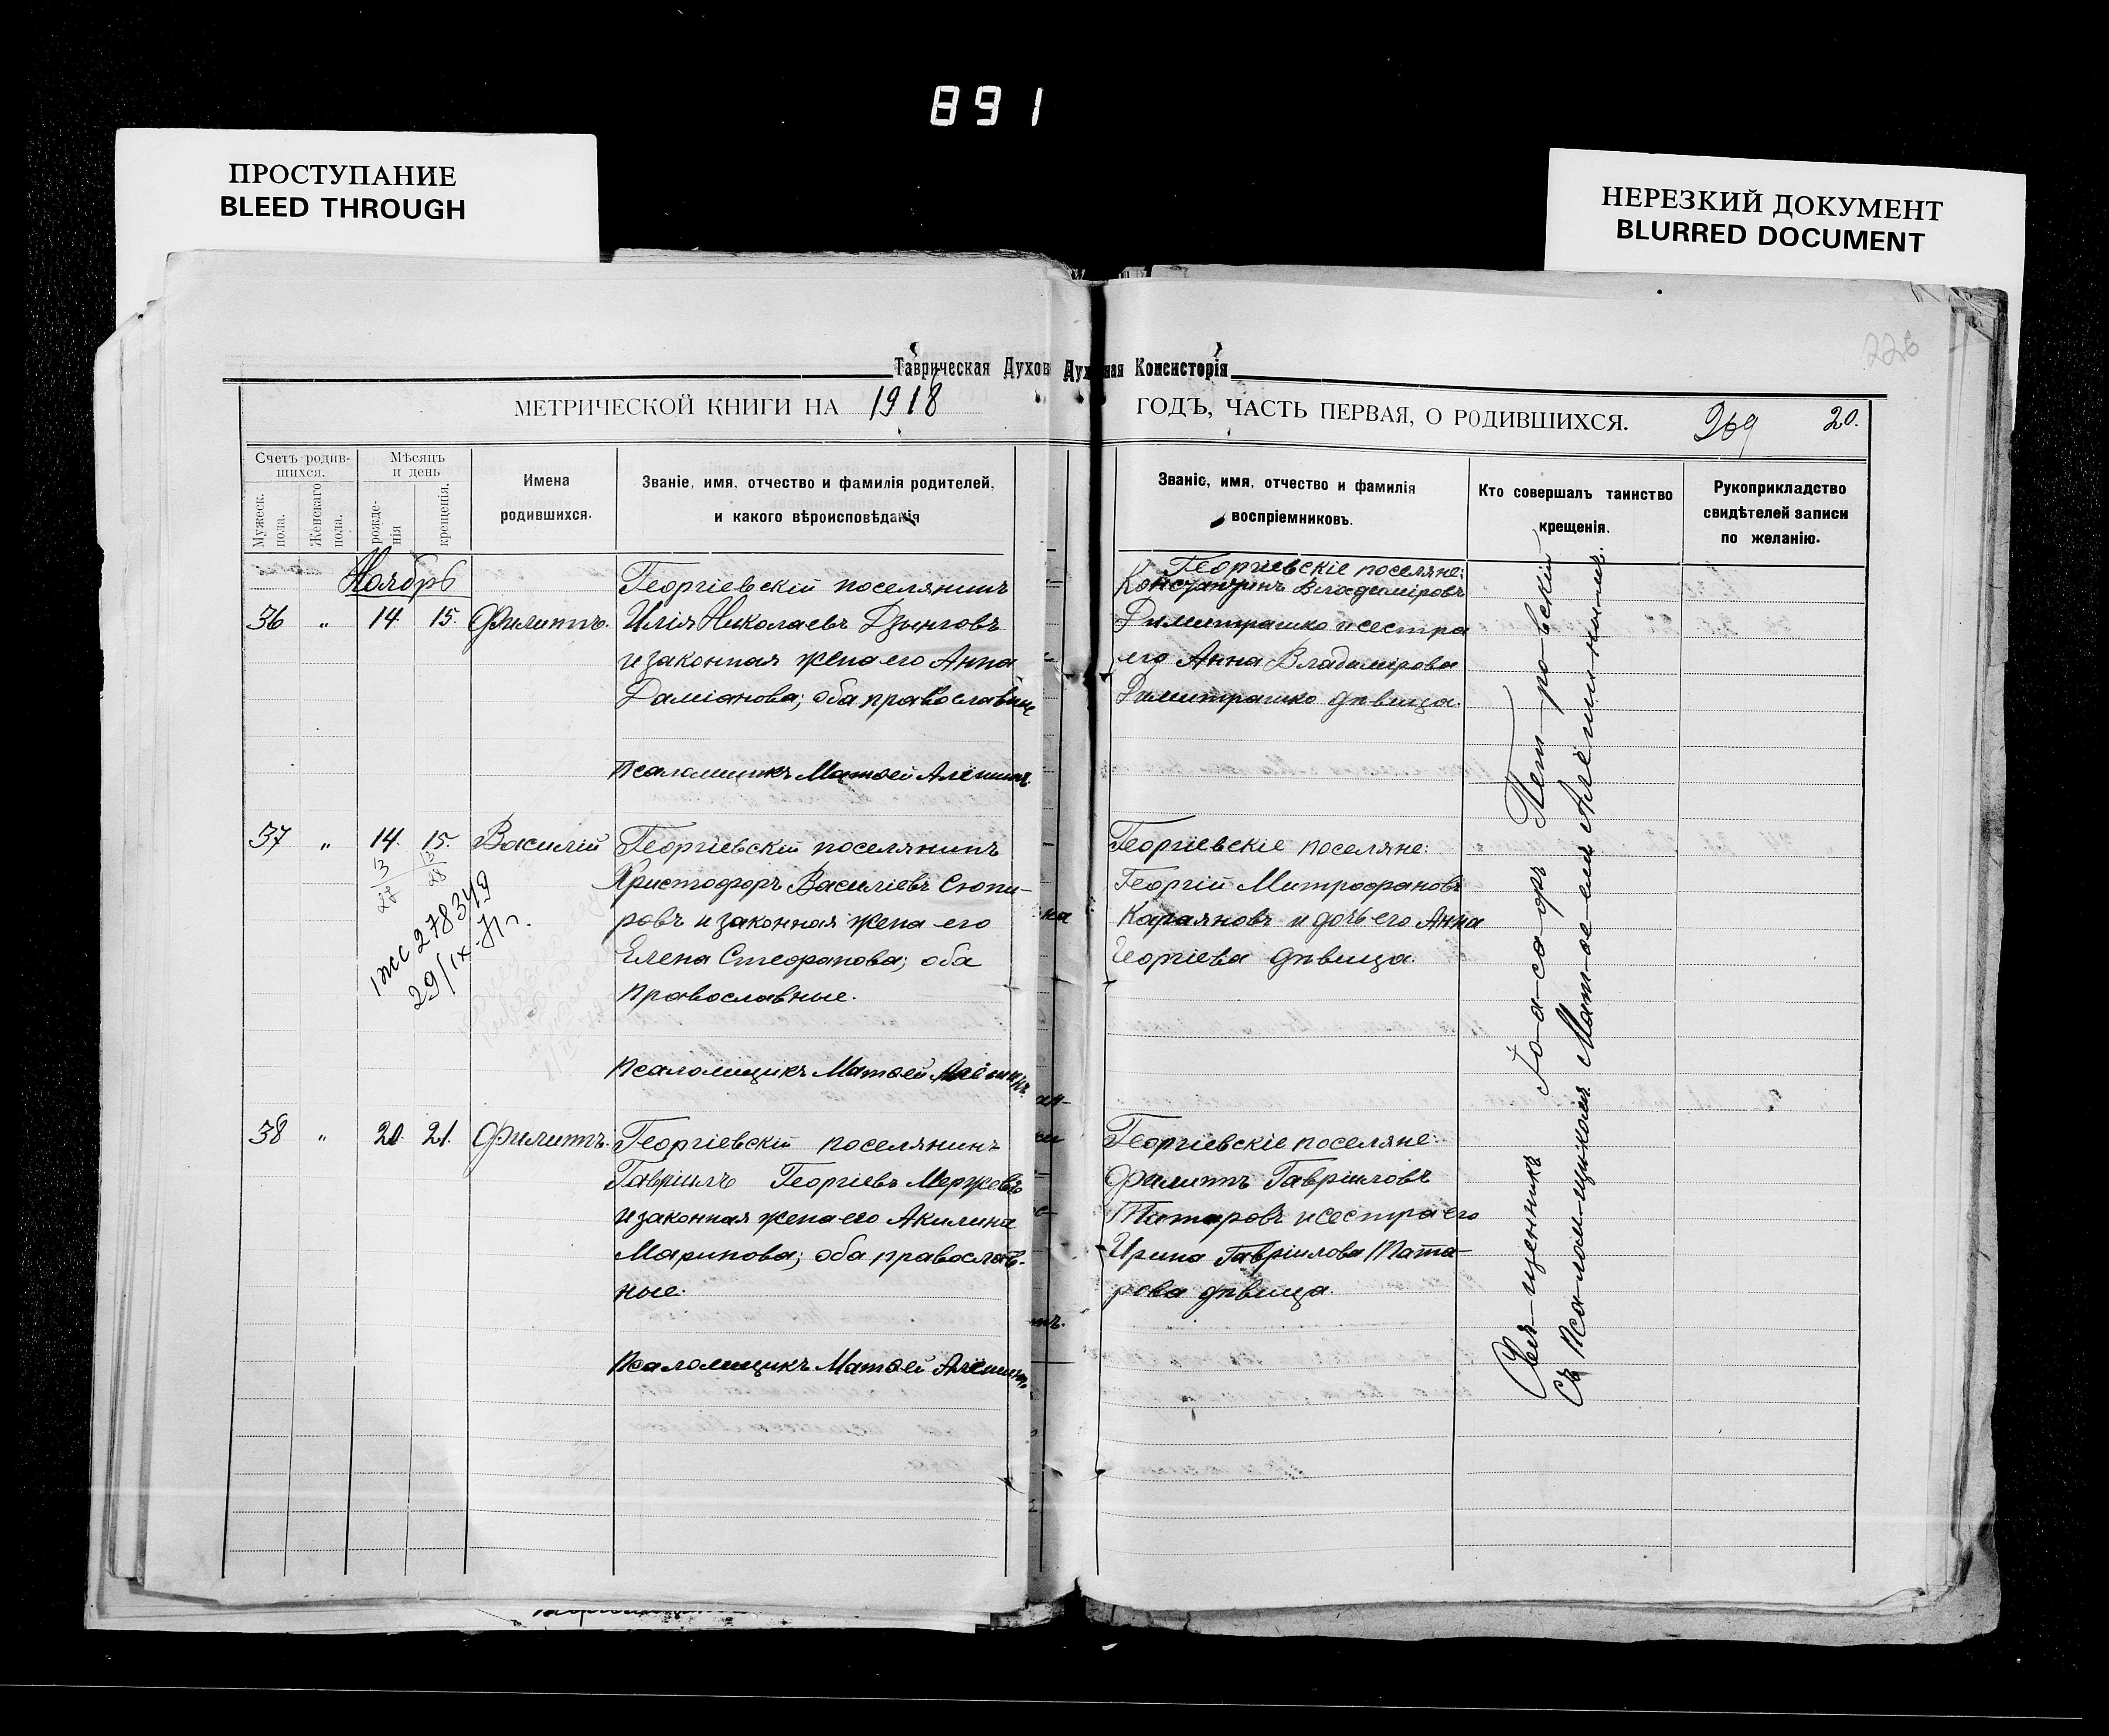 891
ПРОСТУПАНИЕ
BLEED THROUGH
НЕРЕЗКИЙ ДОКУМЕНТ
BLURRED DOCUMENT
Таврическая Духов Духовная Консисторія
МЕТРИЧЕСКОЙ КНИГИ НА 1918
Счетъ родив-
шихся.
Мужеск.
пола.
Женскаго
пола.
Мѣсяцъ
и день
рожде-
нія
крещенія.
Имена
родившихся.
Званіе, имя, отчество и фамилія родителей,
и какого вѣроисповѣданія
Ноябрь
Георгіевскій поселянинъ
36 " 14 15. Филиппъ. Илія Николаевъ Дзынговъ
и законная жена его Анна
Даміанова; оба православные
Псаломщикъ Матѳей Алёшинъ.
37 " 14. 15. Василій Георгіевскій поселянинъ
13
28
13
28
Христофоръ Василіевъ Стопи-
ровъ и законная жена его
Елена Стефанова; оба
православные.
278349
29/IX
Псаломщикъ Матѳей Алёшинъ.
38 " 20. 21. Филиппъ. Георгіевскій поселянинъ
Гавріилъ Георгіевъ Мержевъ
и законная жена его Акилина
Маринова; оба православ-
ные.
Псаломщикъ Матѳей Алёшинъ.
226
ГОДЪ, ЧАСТЬ ПЕРВАЯ, О РОДИВШИХСЯ. 269 20.
Званіе, имя, отчество и фамилія
воспріемниковъ.
Кто совершалъ таинство
крещенія.
Рукоприкладство
свидѣтелей записи
по желанію.
Георгіевскіе поселяне:
Константинъ Владиміровъ
Димитрашко и сестра
его Анна Владимірова
Димитрашко дѣвица.
Георгіевскіе поселяне:
Георгій Митрофановъ
Караяновъ и дочь его Анна
Георгіева дѣвица.
Георгіевскіе поселяне:
Филиппъ Гавріиловъ
Татаровъ и сестра его
Ирина Гавріилова Тата-
рова дѣвица.
Священникъ Іоасафъ Петровскій
съ Псаломщикомъ Матѳеемъ Алёшинымъ.